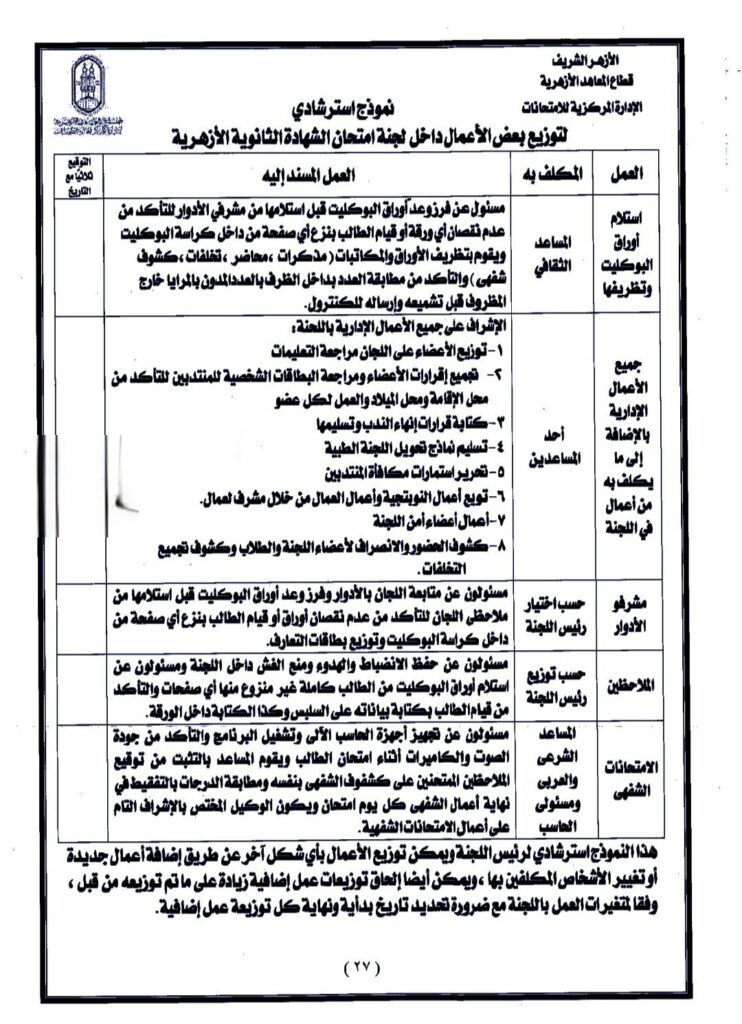 الأزهر الشريف
قطاع المعاهد الأزهرية
الإدارة المركزية للامتحانات
نموذج استرشادي
لتوزيع بعض الأعمال داخل لجنة امتحان الشهادة الثانوية الأزهرية
العمل
المكلف به
العمل المسند إليه
التوقيع
ثلاثيا مع
التاريخ
استلام
أوراق
البوكليت
وتظريفها
المساعد
الثقافي
مسئول عن فرز وعد أوراق البوكليت قبل استلامها من مشرفي الأدوار للتأكد من
عدم نقصان أي ورقة أو قيام الطالب بنزع أي صفحة من داخل كراسة البوكليت
ويقوم بتظريف الأوراق والمكاتبات (مذكرات ، محاضر ، تخلفات ، كشوف
شفهى) والتأكد من مطابقة العدد بداخل الظرف بالعدد المدون بالمرايا خارج
المظروف قبل تشميعه وإرساله للكنترول.
جميع
الأعمال
الإدارية
بالإضافة
إلى ما
يكلف به
من أعمال
في اللجنة
أحد
المساعدين
الإشراف على جميع الأعمال الإدارية باللجنة :
١- توزيع الأعضاء على اللجان مراجعة التعليمات
٢- تجميع إقرارات الأعضاء ومراجعة البطاقات الشخصية للمنتدبين للتأكد من
محل الإقامة ومحل الميلاد والعمل لكل عضو
٣- كتابة قرارات إنهاء الندب وتسليمها
٤- تسليم نماذج تحويل اللجنة الطبية
٥- تحرير استمارات مكافأة المنتدبين
٦- تويع أعمال النوبتجية وأعمال العمال من خلال مشرف لعمال.
٧- أعمال أعضاء أمن اللجنة
٨- كشوف الحضور والانصراف لأعضاء اللجنة والطلاب وكشوف تجميع
التخلفات.
مشرفو
الأدوار
حسب اختيار
رئيس اللجنة
مسئولون عن متابعة اللجان بالأدوار وفرز وعد أوراق البوكليت قبل استلامها من
ملاحظى اللجان للتأكد من عدم نقصان أوراق أو قيام الطالب بنزع أي صفحة من
داخل كراسة البوكليت وتوزيع بطاقات التعارف.
الملاحظين
حسب توزيع
رئيس اللجنة
مسئولون عن حفظ الانضباط والهدوء ومنع الغش داخل اللجنة ومسئولون عن
استلام أوراق البوكليت من الطالب كاملة غير منزوع منها أي صفحات والتأكد
من قيام الطالب بكتابة بياناته على السليس وكذا الكتابة داخل الورقة.
الامتحانات
الشفهى
المساعد
الشرعى
والعربى
ومسئولى
الحاسب
مسئولون عن تجهيز أجهزة الحاسب الألى وتشغيل البرنامج والتأكد من جودة
الصوت والكاميرات أثناء امتحان الطالب ويقوم المساعد بالتثبت من توقيع
الملاحظين الممتحنين على كشفوف الشفهى بنفسه ومطابقة الدرجات بالتفقيط في
نهاية أعمال الشفهى كل يوم امتحان ويكون الوكيل المختص بالإشراف التام
على أعمال الامتحانات الشفهية.
هذا النموذج استرشادي لرئيس اللجنة ويمكن توزيع الأعمال بأي شكل آخر عن طريق إضافة أعمال جديدة
أو تغيير الأشخاص المكلفين بها ، ويمكن أيضا إلحاق توزيعات عمل إضافية زيادة على ما تم توزيعه من قبل ،
وفقا لمتغيرات العمل باللجنة مع ضرورة تحديد تاريخ بدأية ونهاية كل توزيعة عمل إضافية.
(٢٧)